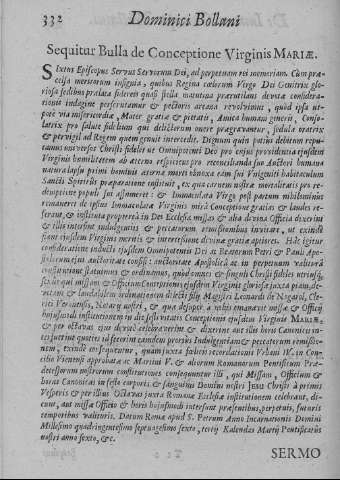 332 Dominici Bollani
Sequitur Bulla de Conceptione Virginis MARIÆ.
Sixtus Episcopus Servus Servorum Dei, ad perpetuam rei memoriam. Cum præ-
celsa meritorum insignia, quibus Regina cœlorum Virgo Dei Genitrix glo-
riosa sedibus prælata sidereis quasi stella matutina prærutilans devotæ considera-
tionis indagine perscrutamur & pectoris arcana revolvimus, quòd ipsa ut-
pote via misericordiæ, Mater gratiæ & pietatis, Amica humani generis, Conso-
latrix pro salute fidelium qui delictorum onere prægravantur, sedula oratrix
& pervigil ad Regem quem genuit intercedit. Dignum quin potius debitum repu-
tamus universos Christi fideles ut Omnipotenti Deo pro cujus providentia ejusdem
Virginis humilitatem ab æterno respiciens pro reconcilianda suo Auctori humana
natura lapsu primi hominis æternæ morti obnoxa eam sui Unigeniti habitaculum
Sancti Spiritus præparatione instituit, ex qua carnem nostræ mortalitatis pro re-
demptione populi sui assumeret: & Immaculata Virgo post partum nihilominus
remaneret de ipsius Immaculatæ Virginis mira Conceptione gratias & laudes re-
ferant, & instituta propterea in Dei Ecclesia missas & alia divina Officia dixerint
& illis interfint indulgentiis & peccatorum remissionibus invitare, ut exinde
fiant ejusdem Virginis meritis & intercessione divinæ gratiæ aptiores. Hac igitur
consideratione inducti ejusdem Omnipotentis Dei ac Beatorum Petri & Pauli Apo-
stolorum ejus Auctoritate confisi: auctoritate Apostolica ac in perpetuum valitura
constitutione statuimus & ordinamus, quòd omnes & singuli Christi fideles utriusq;
sexus qui missam & Officium Conceptionis ejusdem Virginis gloriosæ juxta piam, de-
votam & laudabilem ordinationem dilecti filij Magistri Leonardi de Nogarol, Cle-
rici Veronensis, Notarij nostri, & quæ desuper à nobis emanavit missæ & Officij
hujusmodi institutionem in die festivitatis Conceptionis ejusdem Virginis MARIÆ,
& per octavas ejus devotè celebraverint & dixerint aut illis horis Canonicis in-
terfuerint quoties id fecerint eamdem prorsus Indulgentiam & peccatorum remissio-
nem, exinde consequantur, quam juxta fœlicis recordationis Urbani IV. in Con-
cilio Viennensi approbatæ ac Martini V. & aliorum Romanorum Pontificum Præ-
decessorum nostrorum constitutiones consequuntur illi, qui Missam, Officium &
horas Canonicas in festo corporis & sanguinis Domini nostri JESU Christi à primis
Vesperis & per illius Octavas juxta Romanæ Ecclesiæ institutionem celebrant, di-
cunt, aut missæ Officio & horis hujusmodi intersunt præsentibus, perpetuis, futuris
temporibus valituris. Datum Romæ apud S. Petrum Anno Incarnationis Domini
Millesimo quadringentesimo septuagesimo sexto, tertij Kalendas Martij Pontificatus
nostri anno sexto, &c.
SERMO